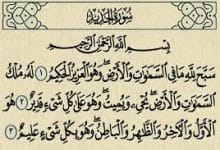 سورة الحديد
بِسْمِ اللَّهِ الرَّحْمَٰنِ الرَّحِيمِ
سَبَّحَ لِلَّهِ مَا فِي السَّمَٰوَٰتِ وَالْأَرْضِ وَهُوَ الْعَزِيزُ الْحَكِيمُ ۝١ لَهُ مُلْكُ
السَّمَٰوَٰتِ وَالْأَرْضِ يُحْيِي وَيُمِيتُ وَهُوَ عَلَىٰ كُلِّ شَيْءٍ قَدِيرٌ ۝٢ هُوَ
الْأَوَّلُ وَالْآخِرُ وَالظَّاهِرُ وَالْبَاطِنُ وَهُوَ بِكُلِّ شَيْءٍ عَلِيمٌ ۝٣